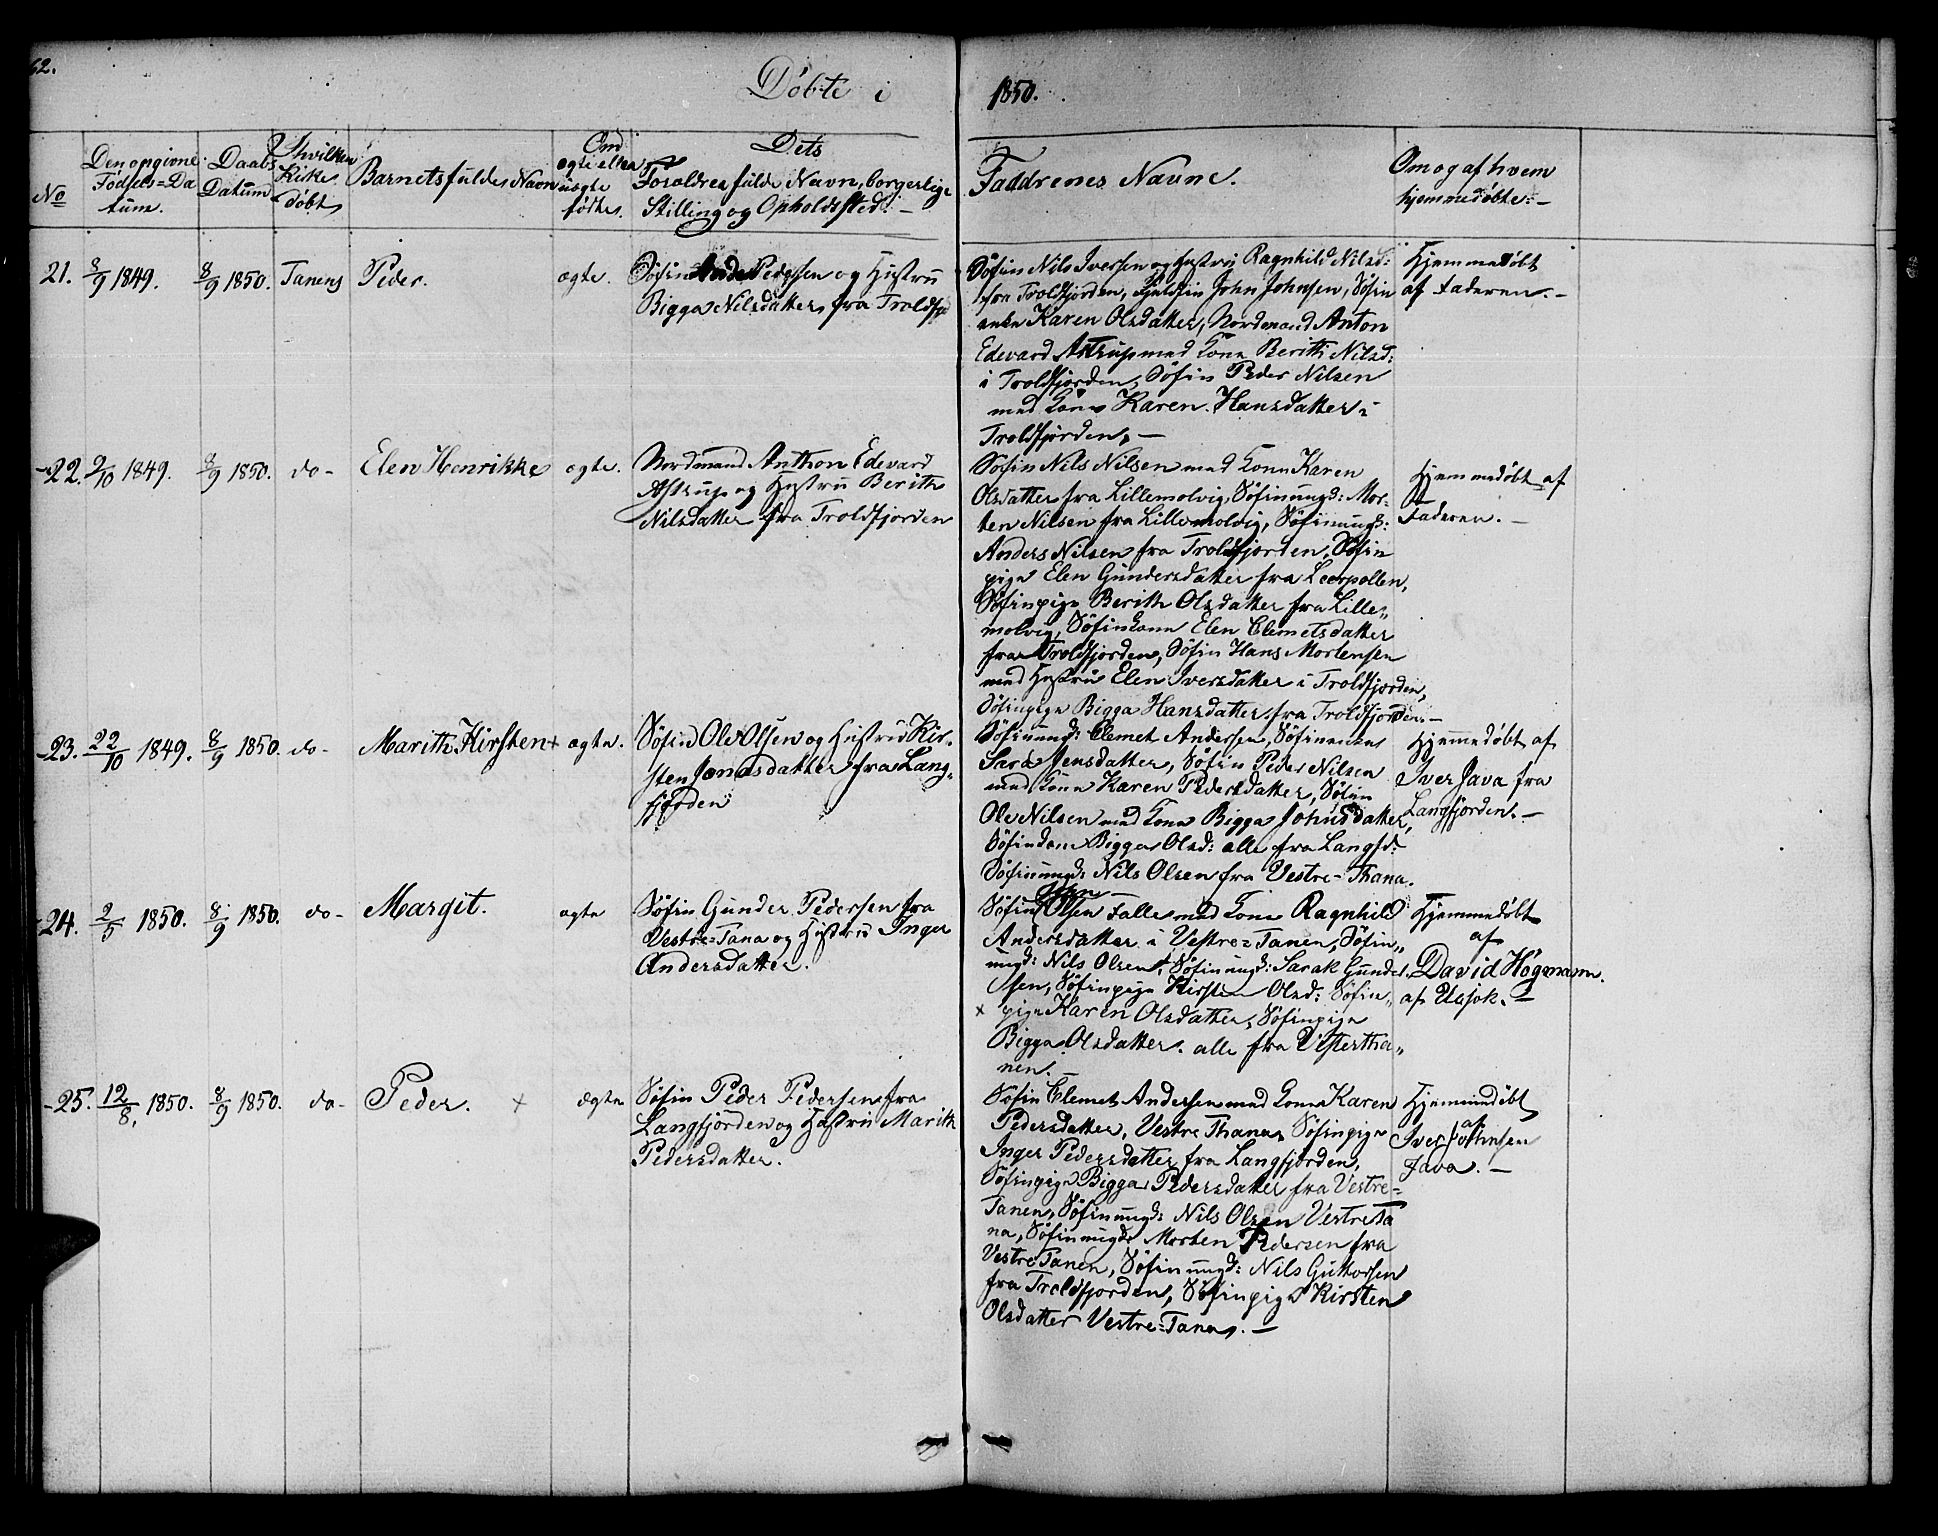 62.
Döbte i
1850.
No
Den opgivne
Fødsels=Da
tum.
Daabs
Datum
I hvilken
Kirke
döbt
Barnets fulde Navn
Om
ægte eller
uægte
födte.
Dets
Forældres fulde Navn, borgerlige
Stilling og Opholdssted. –
Faddrenes Navne.
Om og af hvem
hjemmedöbte. –
21.
8/9 1849.
8/9 1850.
Tanens
Peder.
ægte.
Söfin Anders Pedersen og Hustru
Bigga Nilsdatter, fra Troldfj
Söfin Nils Iversen og Hustru Ragnhild Nilsd:
fra Troldfjorden, Fjeldfin John Johnsen, Söfin
enke Karen Olsdatter, Nordmand Anton
Edevard Astrup med Kone Berith Nilsd:
i Troldfjorden, Söfin Peder Nilsen
med Kone Karen Hansdatter i
Troldfjorden, –
Hjemmedöbt
af Faderen. –
22.
2/10 1849.
8/9 1850.
do –
Elen Henrikke
ægte.
Nordmand Anthon Edevard
Astrup og Hustru Berith
Nilsdatter fra Troldfjorden
Söfin Nils Nilsen med Kone Karen
Olsdatter fra Lillemolvig, Söfinungd: Mor-
ten Nilsen fra Lillemolvig, Söfinungd:
Anders Nilsen fra Troldfjorden, Söfin
pige Elen Gundersdatter fra Leerpollen,
Söfinpige Berith Olsdatter fra Lille„
molvig, Söfinkone Elen Clemetsdatter
fra Troldfjorden, Söfin Hans Mortensen
med Hustru Elen Iversdatter i Troldfjorden,
Söfinpige Bigga Hansdatter fra Troldfjorden. –
Hjemmedöbt af
Faderen. –
23.
22/10 1849.
8/9 1850.
do –
Marith Kirsten +
ægte.
Söfin Ole Olsen og Hustru Kir-
sten Jonasdatter fra Lang-
fjorden
Söfinungd: Clemet Andersen, Söfinenke
Sara Jensdatter, Söfin Peder Nilsen
med Kone Karen Pedersdatter, Söfin
Ole Nilsen med Kone Bigga Johnsdatter,
Söfinkone Bigga Olsd: alle fra Langfd:
Söfinungd: Nils Olsen fra Vestre=Thana.
Hjemmedöbt af
Iver Java fra
Langfjorden. –
24.
2/5 1850.
8/9 1850.
do –
Margit.
ægte
Söfin Gunder Pedersen fra
Vestre=Tana og Hustru Inger
Andersdatter.
Söfin Olsen Falle med Kone Ragnhild
Andersdatter i Vestre=Tanen, Söfin„
ungd: Nils Olsen, Söfinungd: Sarak Gunder
sen, Söfinpige Kirsten Olsd: Söfin„
× pige Karen Olsdatter, Söfinpige
Bigga Olsdatter. alle fra Vestertha„
nen. –
Hjemmedöbt
af
David Högmann
af Utsjok. –
25.
12/8. 1850.
8/9 1850.
do –
Peder. +
ægte
Söfin Peder Pedersen fra
Langfjorden og Hustru Marith
Pedersdatter.
Söfin Clemet Andersen med Kone Karen
Pedersdatter, Vestre Thana, Söfinpige
Inger Pedersdatter fra Langfjorden,
Söfinpige Bigga Pedersdatter fra Vestre=
Tanen, Söfinungd: Nils Olsen Vestre Ta
na, Söfinungd: Morten Pedersen fra
Vestre Tanen, Söfinungd: Nils Guttorsen
fra Troldfjorden, Söfinpige Kirsten
Olsdatter Vestre=Tana. –
Hjemmedöbt
af
Iver Johnsen
Java. –